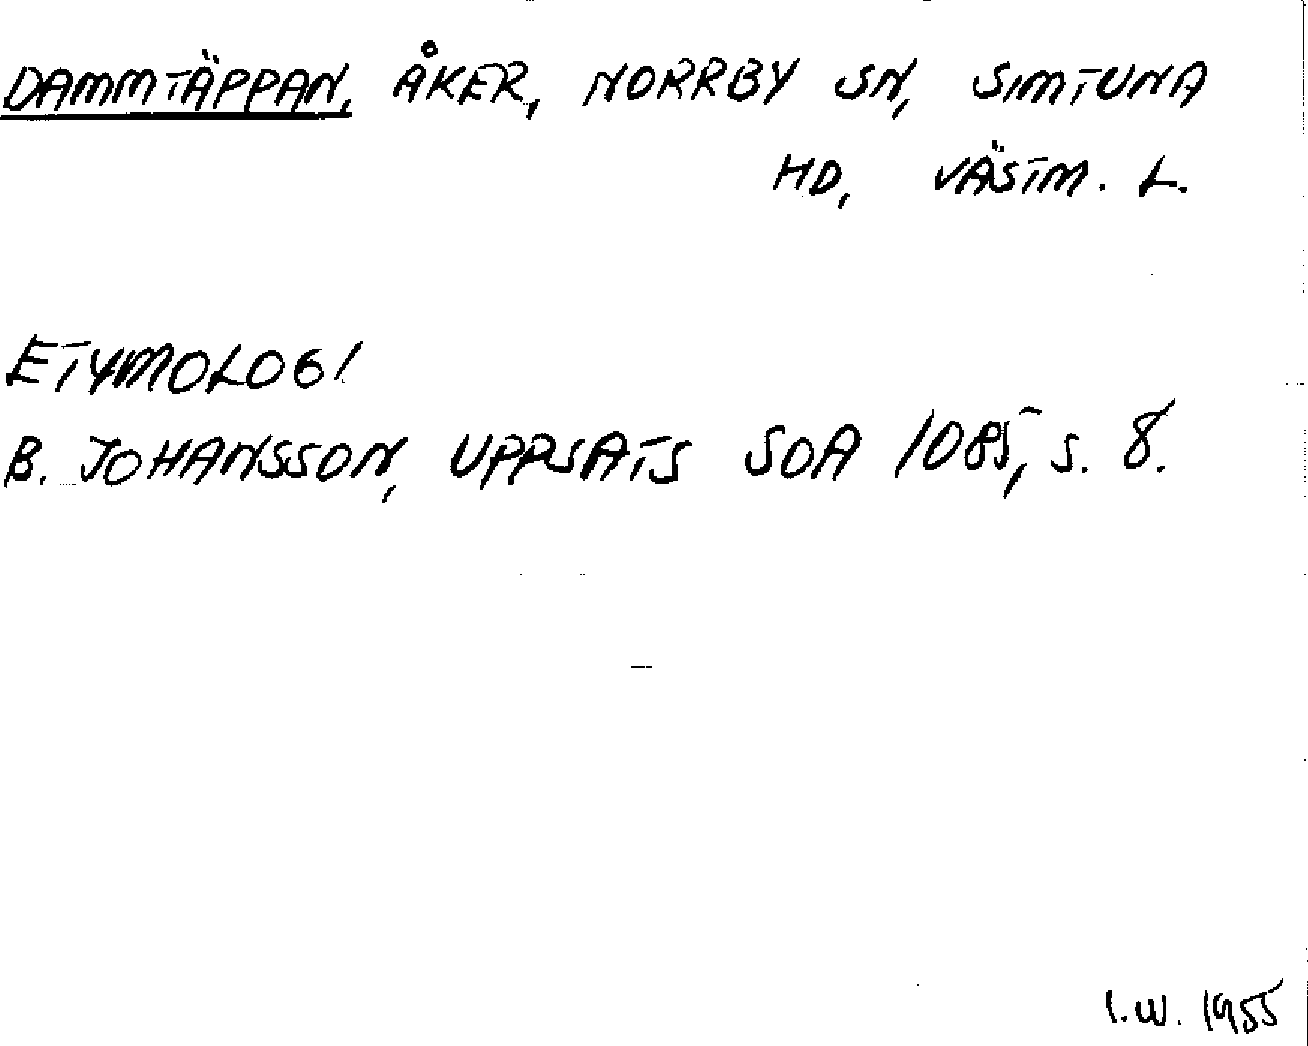 DAMMTÄPPAN, ÅKER, NORRBY SN, SIMTUNA
HD, VÄSTM. L.
ETYMOLOGI
B. JOHANSSON, UPPSATS SOA 1085, S. 8.
I.W. 1955